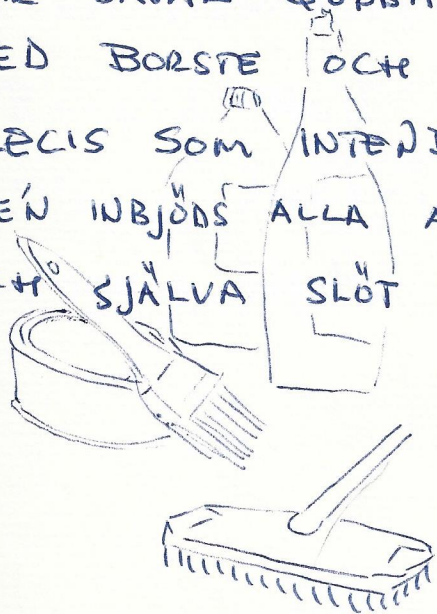 ED BORSTE OCH
ECIS SOM INTEND
EN INBJÖDS ALLA A
H SJÄLVA SLÖT